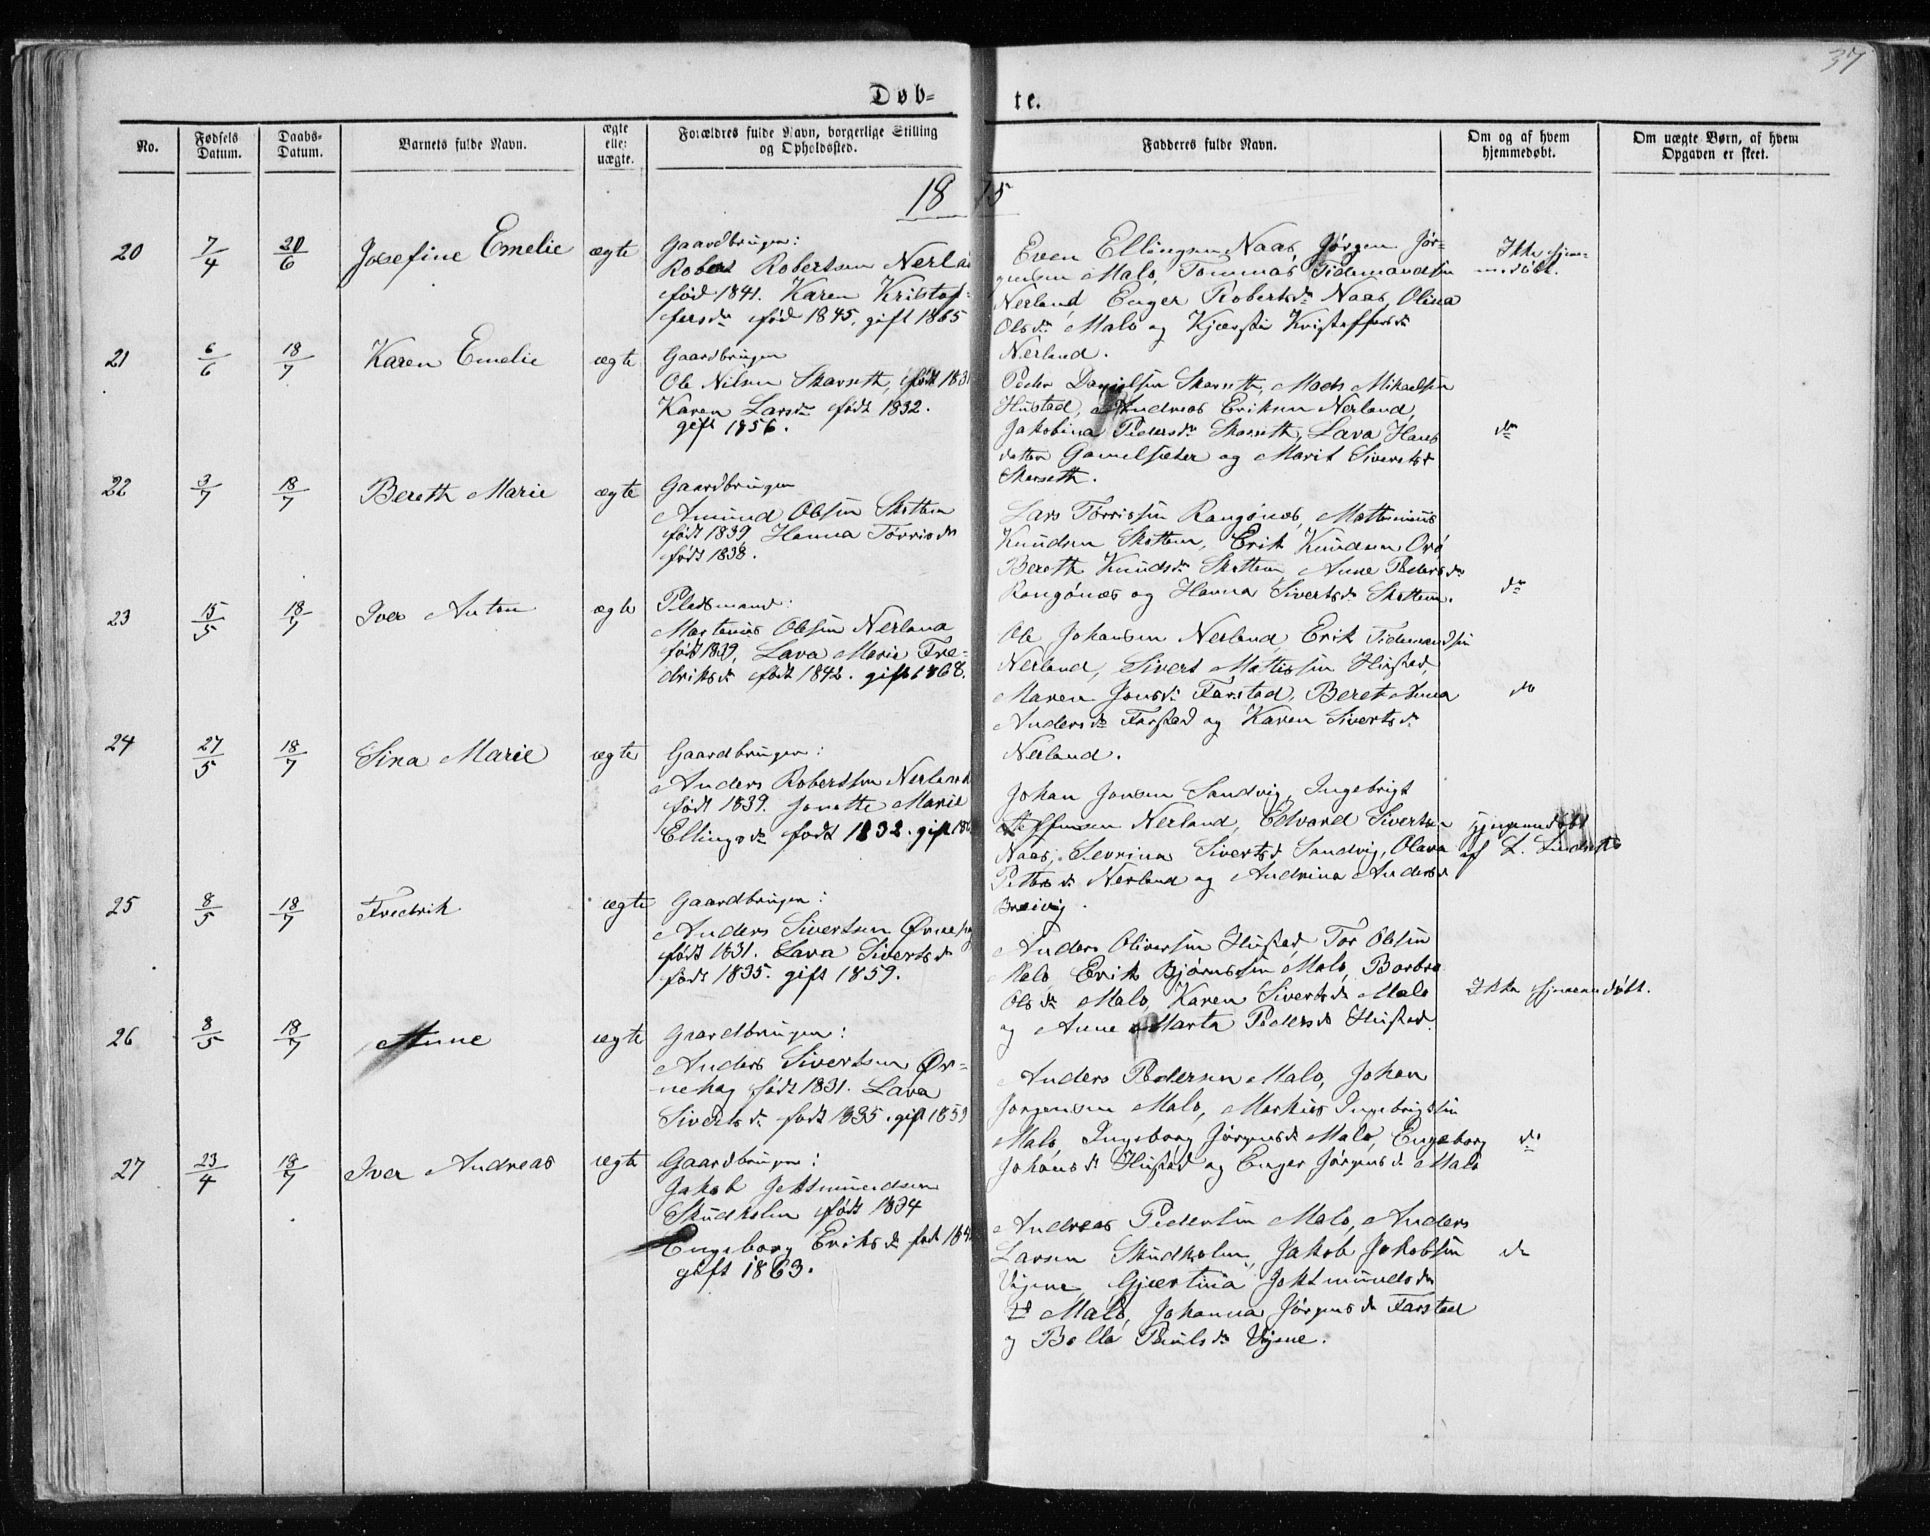 37
Døb-
te.
No.
Fødsels Datum.
Daabs- Datum.
Barnets fulde Navn.
ægte eller uægte.
Forældres fulde Navn, borgerlige Stilling og Opholdssted.
Fadderes fulde Navn.
Om og af hvem hjemmedøbt.
Om uægte Børn, af hvem Opgaven er skeet.
18 75
20 7/4 20/6 Josefine Emelie ægte
Gaardbruger:
Robert Robertsen Nerland
født 1841. Karen Kristof-
fersdr født 1845. gift 1865
Even Ellingsen Naas, Jørgen Jør-
gensen Malo, Tommas Tidemandsen
Nerland, Enger Robertsdr Naas, Olina
Olsdr Malo og Kjærsti Kristoffersdr
Nerland.
Ikke hjem-
medøbt.
21 6/6 18/7 Karen Emelie ægte
Gaardbruger
Ole Nilsen Skarseth, født 1831
Karen Larsdr født 1832.
gift 1856.
Peder Danielsen Skarseth, Mads Mikaelsen
Hustad, Andreas Eriksen Nerland,
Jakobina Pedersdr Skarseth, Lava Hans
datter Gamelsæter og Marit Sivertsdr
Skarseth.
do
22 3/7 18/7 Bereth Marie ægte
Gaardbruger
Amund Olsen Skottem
født 1839, Hanna Torrisdr
født 1838.
Lars Torrissen Rangønæs, Mattemius
Knudsen Skottem, Erik Knudsen Orö
Bereth Knudsdr Skottem, Anne Pedersdr
Rangønæs og Hanna Sivertsdr Skottem.
do
23 15/5 18/7 Iver Anton ægte
Pladsmand:
Martenius Olsen Nerland
født 1839, Lava Marie Fre-
driksdr født 1842. gift 1868.
Ole Johansen Nerland, Erik Tidemandsen
Nerland, Sivert Mattissen Hustad,
Maren Jonsdr Farstad, Beret Anna
Andersdr Farstad og Karen Sivertsdr
Nerland.
do
24 27/5 18/7 Sina Marie ægte
Gaardbruger:
Anders Robertsen Nerland
født 1839. Jonette Marie
Ellingsdr født 1832. gift
Johan Jonsen Sandvig, Ingebrigt
Steffensen Nerland, Edvard Sivertsen
Naas, Sevrina Sivertsdr Sandvig, Olava
Pettersdr Nerland og Andrina Andersdr
Breivig.
hjemmedøbt
af L.
25 8/5 18/7 Fredrik ægte
Gaardbruger:
Anders Sivertsen Ørnehag
født 1831. Lava Sivertsdr
født 1835. gift 1859.
Anders Oliversen Hustad, Tor Olsen
Malo, Erik Bjørnssen Malo, Barbra
Olsdr Malo, Karen Sivertsdr Malo
og Anne Marta Pedersdr Hustad.
Ikke hjemmedøbt.
26 8/5 18/7 Anne ægte
Gaardbruger:
Anders Sivertsen Ør-
nehag født 1831. Lava
Sivertsdr født 1835. gift 1859
Anders Pedersen Malo, Johan
Jorgensen Malo, Markus Ingebrigtsen
Malo, Ingeborg Jørgensdr Malo, Engeborg
Johansdr Hustad og Enger Jørgensdr Malo
do
27 23/4 18/7 Iver Andreas ægte
Gaardbruger:
Jakob Jetmundsen
Skudholm født 1834
Engeborg Eriksdr født
gift 1863.
Andreas Pedersen Malo, Anders
Larsen Skudholm, Jakob Jakobsen
Vigene, Gjærtina Jetmundsdr
Malo, Johanna Jørgensdr Farstad
og Bolla Poulsdr Vigene.
do